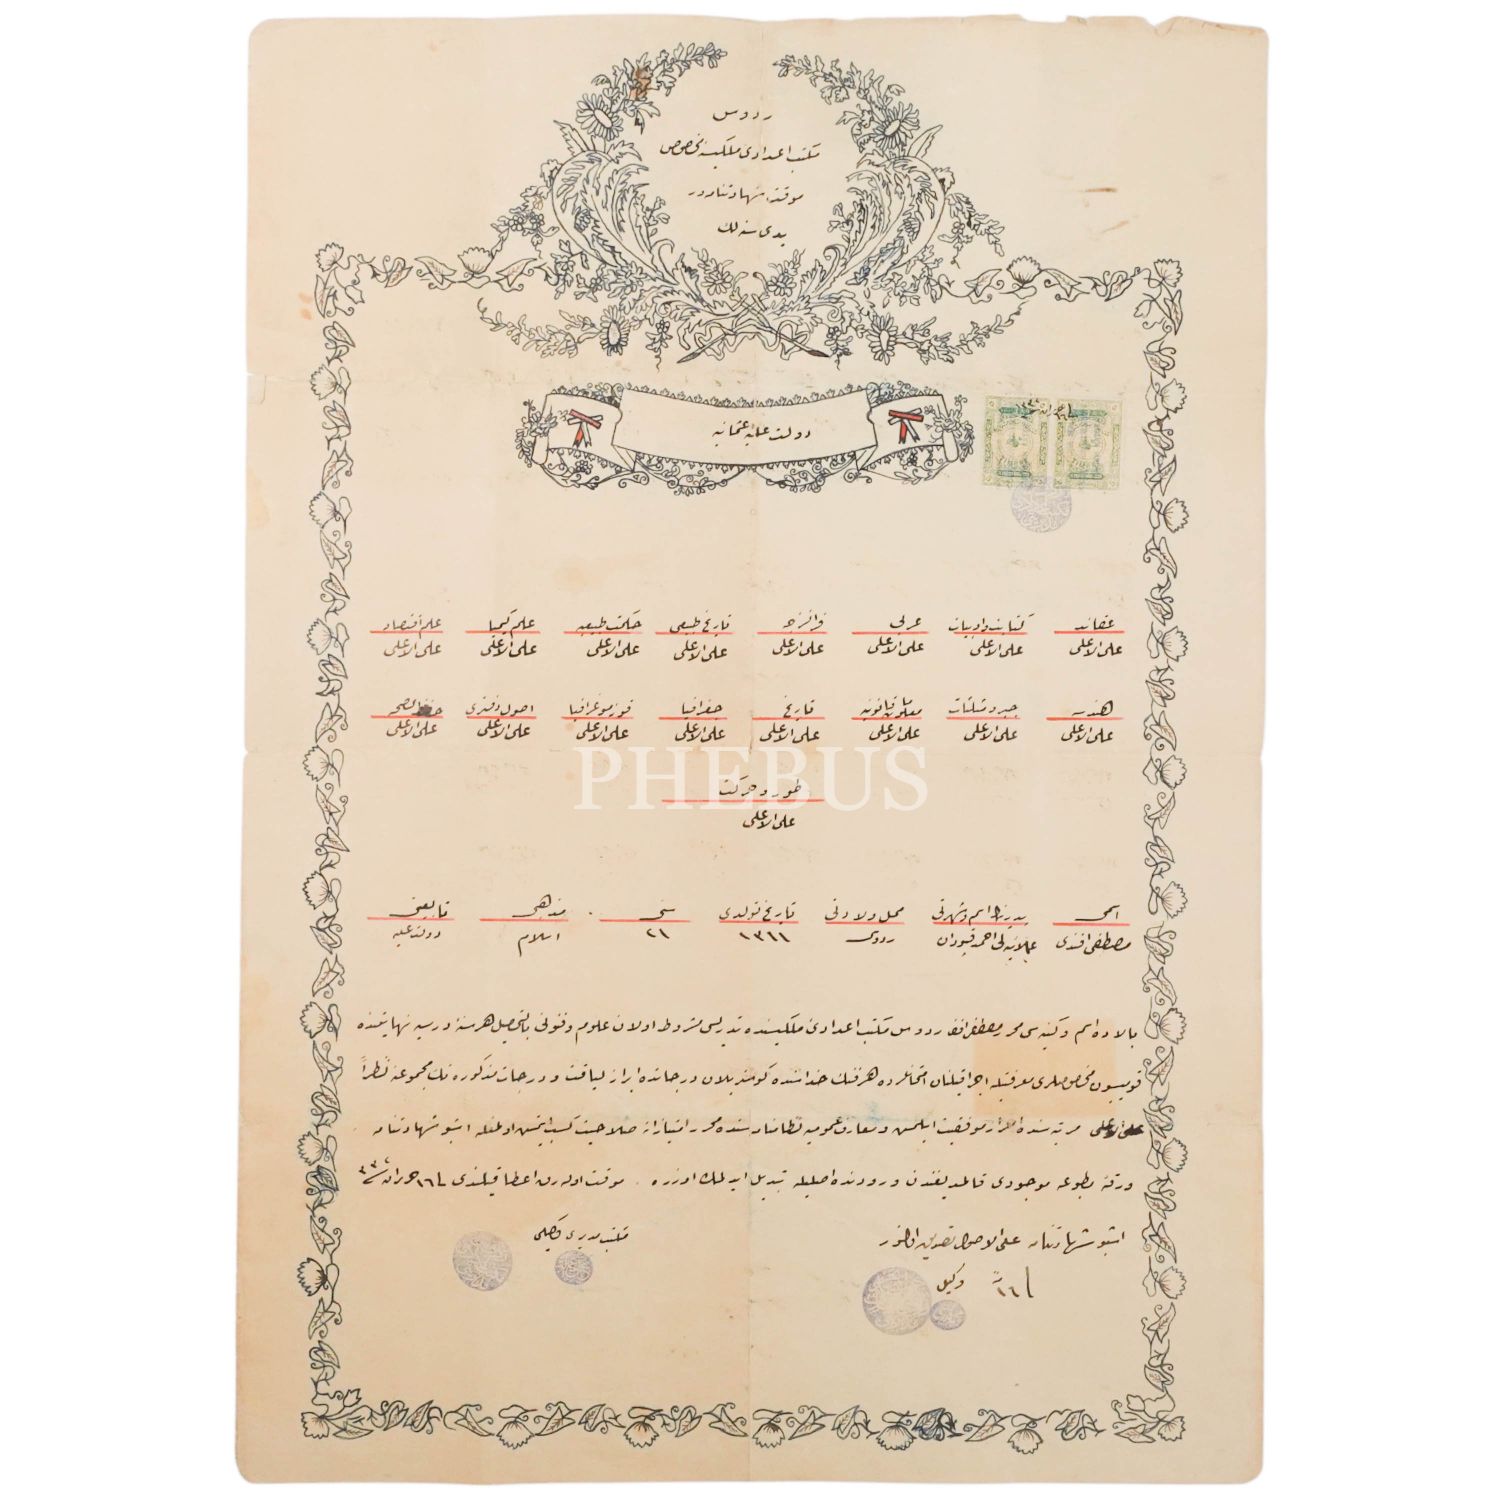 ردوس
مكتب اعدادی ملكیسنه مخصوص
موقت شهادتنامه در
یدی سنه لك
دولت علیهٔ عثمانیه
عقائد كتابت و ادبیات عربی فرانسزجه تاریخ طبیعی حكمت طبیعیه علم كیمیا علم اقتصاد
علی الاعلی علی الاعلی علی الاعلی علی الاعلی علی الاعلی علی الاعلی علی الاعلی علی الاعلی
هندسه جبر و مثلثات معلومات قانونیه تاریخ جغرافیا قوزموغرافیا اصول دفتری حفظ الصحه
علی الاعلی علی الاعلی علی الاعلی علی الاعلی علی الاعلی علی الاعلی علی الاعلی علی الاعلی
PHEBUS
طور و حركت
علی الاعلی
اسمی پدرینك اسم و شهرتی محل ولادتی تاریخ تولدی سنی مذهبی تابعیتی
مصطفی افندی احمد قپودان ردوس ١٣١١ ٢١ اسلام دولت علیه
بالاده اسم و كنیه سی محرر مصطفی افندی ردوس مكتب اعدادی ملكیسنده تدریسی مشروط اولان علوم و فنونی بالتحصیل هر سنهٔ درسیه نهایتنده
قومیسیون مخصوصلری معرفتیله اجرا قیلنان امتحانلرده هر فنك حذاسنده كوستریلان درجاتده ابراز لیاقت و درجات مذكوره نك مجموعنه نظراً
علی الاعلی مرتبه سنده احراز موفقیت ایلمش و معارف عمومیه نظامنامه سنده محرر امتیازاته صلاحیت كسب ایتمش اولمغله اشبو شهادتنامه
ورقهٔ مطبوعه موجودی قالمدیغندن ورودنده اصلیله تبدیل ایدلمك اوزره موقت اوله رق اعطا قیلندی ١٦ حزیران سنه ٣٢
اشبو شهادتنامه علی الاصول تصدیق اولنور
مكتب مدیری وكیلی
وكیل ١٦